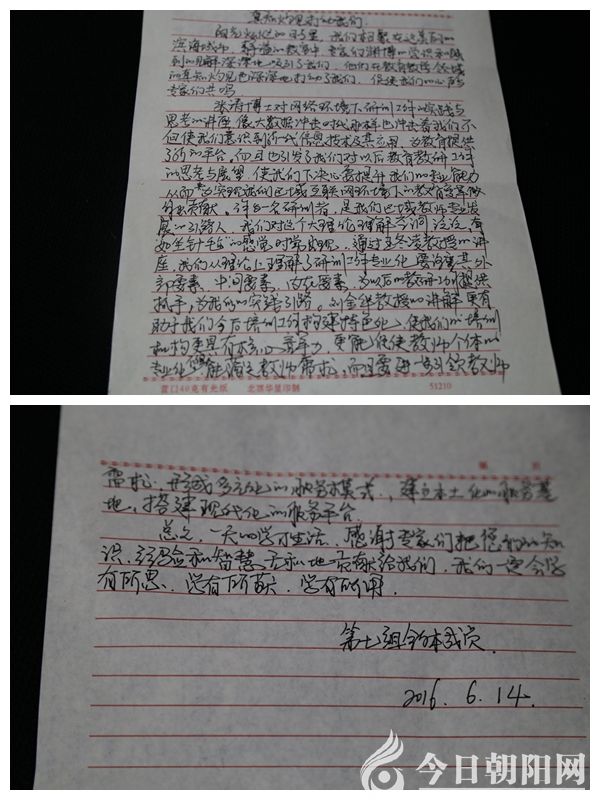 真知灼见打动我们
阳光灿烂的日子里，我们相聚在这美丽的
滨海城市，静谧的教室中，专家们渊博的学识和独
到的见解深深地吸引了我们，他们在教育教学领域
的真知灼见也深深地打动了我们，促使我们的心声与
专家们共鸣。
博士对网络环境下研训工作的实践与
思考的讲座像大数据冲击时代那样也冲击着我们，不
但使我们意识到新一代信息技术及其应用，为教育提供
了新的平台，而且也引发了我们对以后教育教研工作
的思考与展望，使我们下决心要提升我们的专业能力
从而为实现我们区域互联网环境下的教育
贡献。作为一名研训者，是我们区域教师专业发
展的引路人，我们对这个大理论理解
的感觉时常出现，通过王冬凌教授的讲
座，我们从理论上理解了研训工作专业化要注重其外
部要素、中间要素、内在要素，为以后的教研工作提供
抓手，为我们的实践引路。刘金华教授的讲解更有
助于我们今后培训工作构建特色化，使我们的培训
机构具有核心竞争力，更能促使教师个体的
专业化，能满足教师需求，而且要进一步引领教师
霍口40克有光纸 北票华星印制 51210
需求，形成多元化的服务模式，建立本土化的服务基
地，搭建现代化的服务平台。
总之，一天的学习生活，感谢专家们把您们的知
识、经验和智慧无私地贡献给我们，我们一定会学
有所思，学有所获，学有所用。
第七组全体成员
2016.6.14.
今日朝阳网